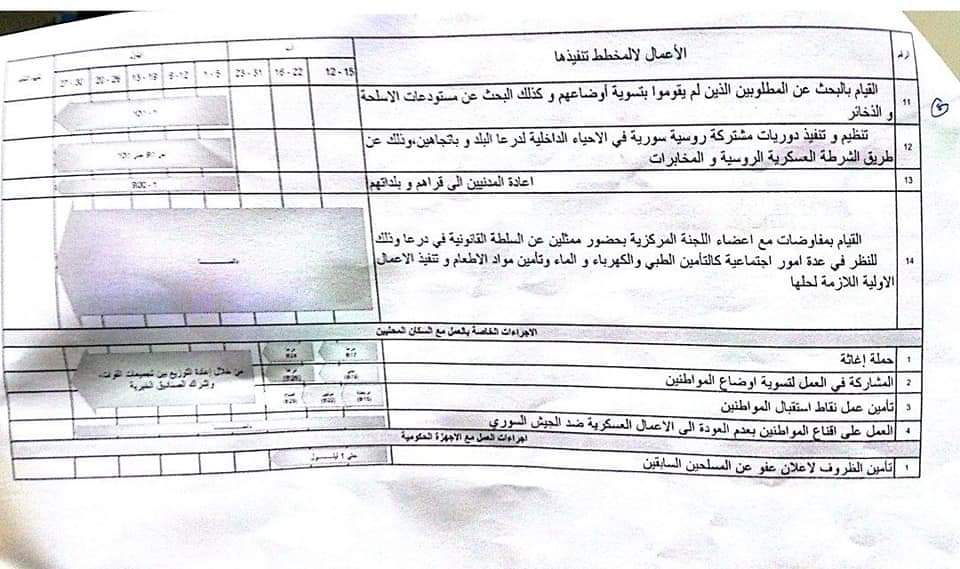 الرقم
الأعمال لالمخطط تنفيذها
آب
أيلول
12 - 15
16 - 22
23 - 31
1 - 5
6 - 12
13 - 19
20 - 26
27 - 30
11
القيام بالبحث عن المطلوبين الذين لم يقوموا بتسوية أوضاعهم و كذلك البحث عن مستودعات الاسلحة
و الذخائر
12
تنظيم و تنفيذ دوريات مشتركة روسية سورية في الاحياء الداخلية لدرعا البلد و باتجاهين،وذلك عن
طريق الشرطة العسكرية الروسية و المخابرات
13
اعادة المدنيين الى قراهم و بلداتهم
14
القيام بمفاوضات مع اعضاء اللجنة المركزية بحضور ممثلين عن السلطة القانونية في درعا وذلك
للنظر في عدة امور اجتماعية كالتأمين الطبي والكهرباء و الماء وتأمين مواد الاطعام و تنفيذ الاعمال
الاولية اللازمة لحلها
الاجراءات الخاصة بالعمل مع السكان المحليين
1
حملة إغاثة
2
المشاركة في العمل لتسوية اوضاع المواطنين
3
تأمين عمل نقاط استقبال المواطنين
من خلال إعادة التوزيع بين تجميعات القوات،
وإشراك الصناديق الخيرية
4
العمل على اقناع المواطنين بعدم العودة الى الاعمال العسكرية ضد الجيش السوري
اجراءات العمل مع الاجهزة الحكومية
1
تأمين الظروف لاعلان عفو عن المسلحين السابقين